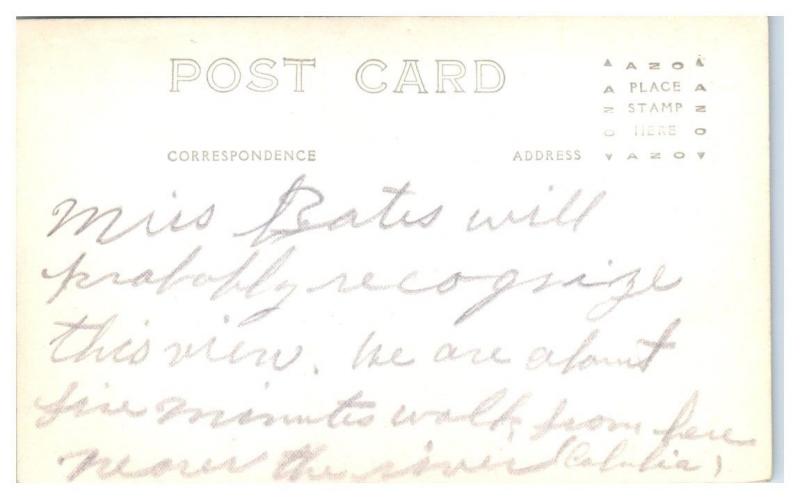 POST CARD
AZO
PLACE
STAMP
HERE
AZO
AZO
AZO
CORRESPONDENCE
ADDRESS
Miss Bates will
probably recognize
this view. We are about
five minutes walk from here
nearer the river